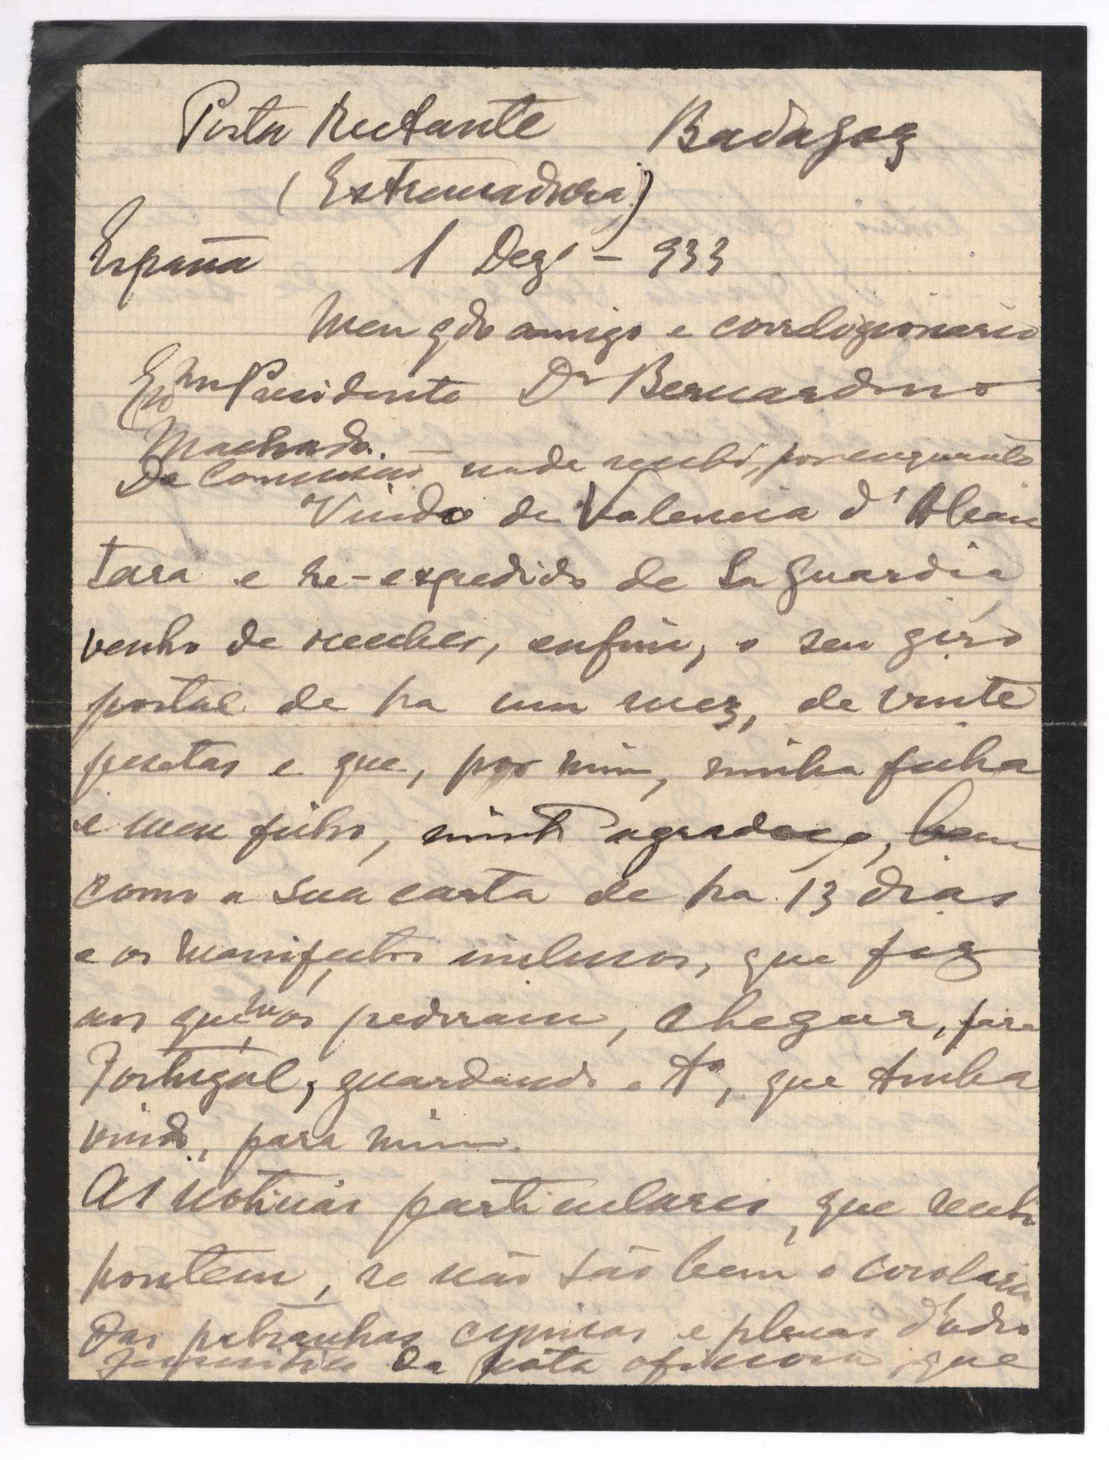 Posta Restante Badajoz
(Extremadura)
España 1 Dezº - 933
Meu qdo amigo e correligionario
Exmo Presidente Dr Bernardino
Machado.
De Comissão nada recebi, por emquanto
Vindo de Valencia d'Alcan
tara e re-expedido de La Guardia
venho de receber, enfim, o seu giro
postal de ha um mez, de vinte
pesetas e que, por mim, minha filha
e meu filho, muito agradeço, bem
como a sua carta de ha 13 dias
e os manifestos inclusos, que fiz
aos que m'os pediram, chegar, para
Portugal, guardando o Aº, que tinha
vindo, para mim.
As noticias particulares, que recebi
hontem, se não são bem o corolario
das patranhas cynicas e plenas d'odio
da nota oficiosa, que